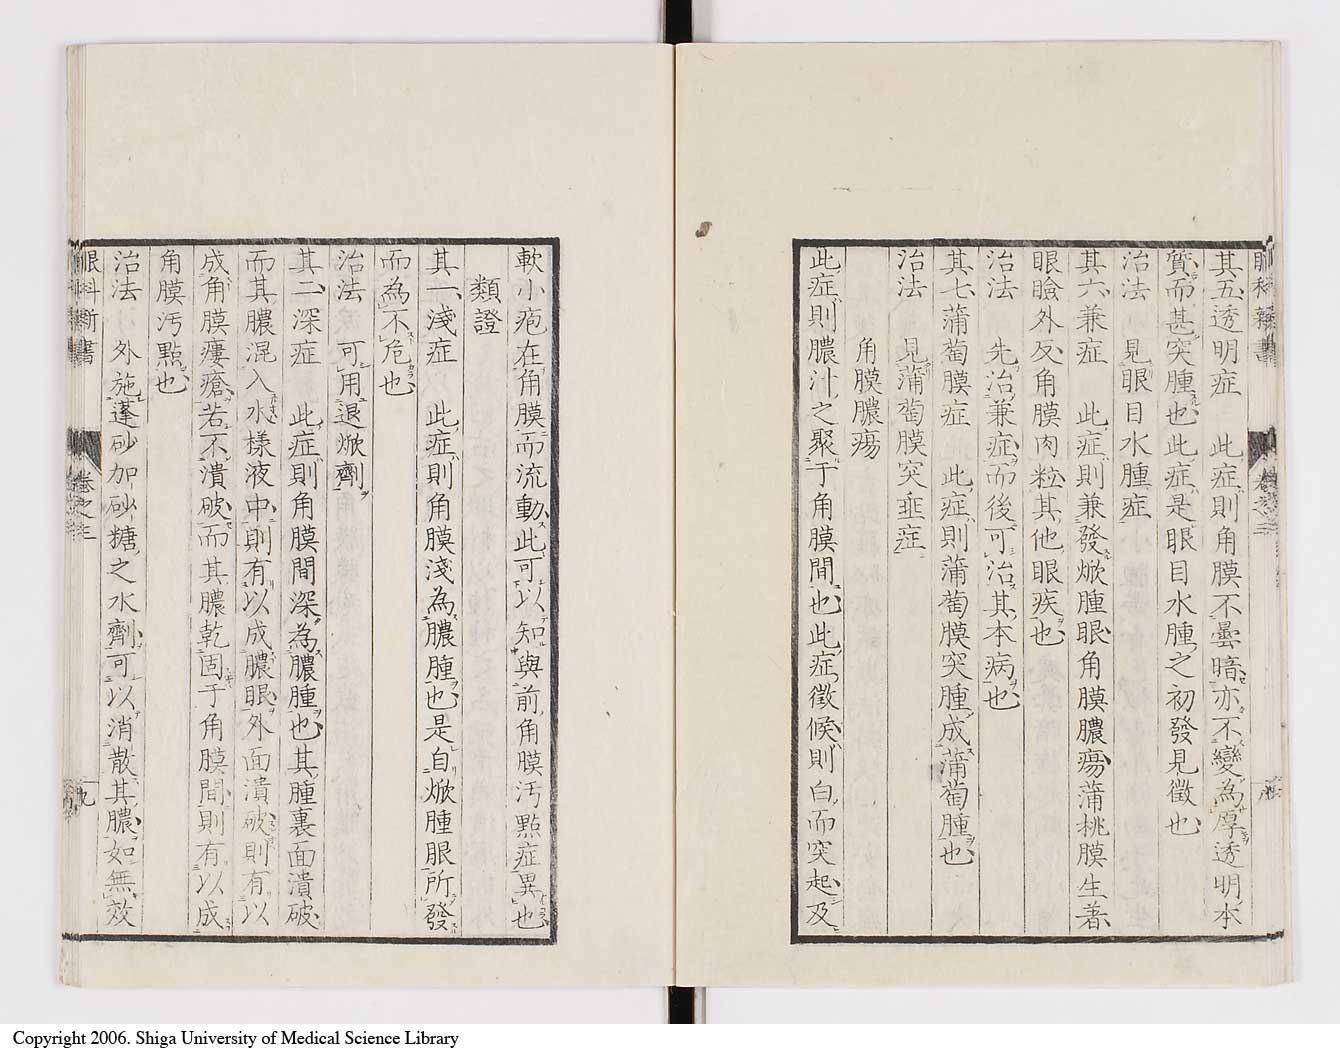 其五、透明症　此症則角膜不曇暗亦不變為厚透明本
質而甚突腫也此症是眼目水腫之初發見徵也
治法　見眼目水腫症
其六、兼症　此症則兼發焮腫眼角膜膿瘍蒲桃膜生著
眼瞼外反角膜肉粒其他眼疾也
治法　先治兼症而後可治其本病也
其七、蒲萄膜症　此症則蒲萄膜突腫成蒲萄腫也
治法　見蒲萄膜突垂症
角膜膿瘍
此症則膿汁之聚于角膜間也此症徵候則白而突起及
軟小疱在角膜而流動此可以知與前角膜汚點症異也
類證
其一、淺症　此症則角膜淺為膿腫也是自焮腫眼所發
而為不危也
治法　可用退焮劑
其二、深症　此症則角膜間深為膿腫也其腫裏面潰破
而其膿混入水樣液中則有以成膿眼外面潰破則有以
成角膜瘻瘡若不潰破而其膿乾固于角膜間則有以成
角膜汚點也
治法　外施蓬砂加砂糖之水劑可以消散其膿如無效
眼科新書
卷之三
九
Copyright 2006. Shiga University of Medical Science Library